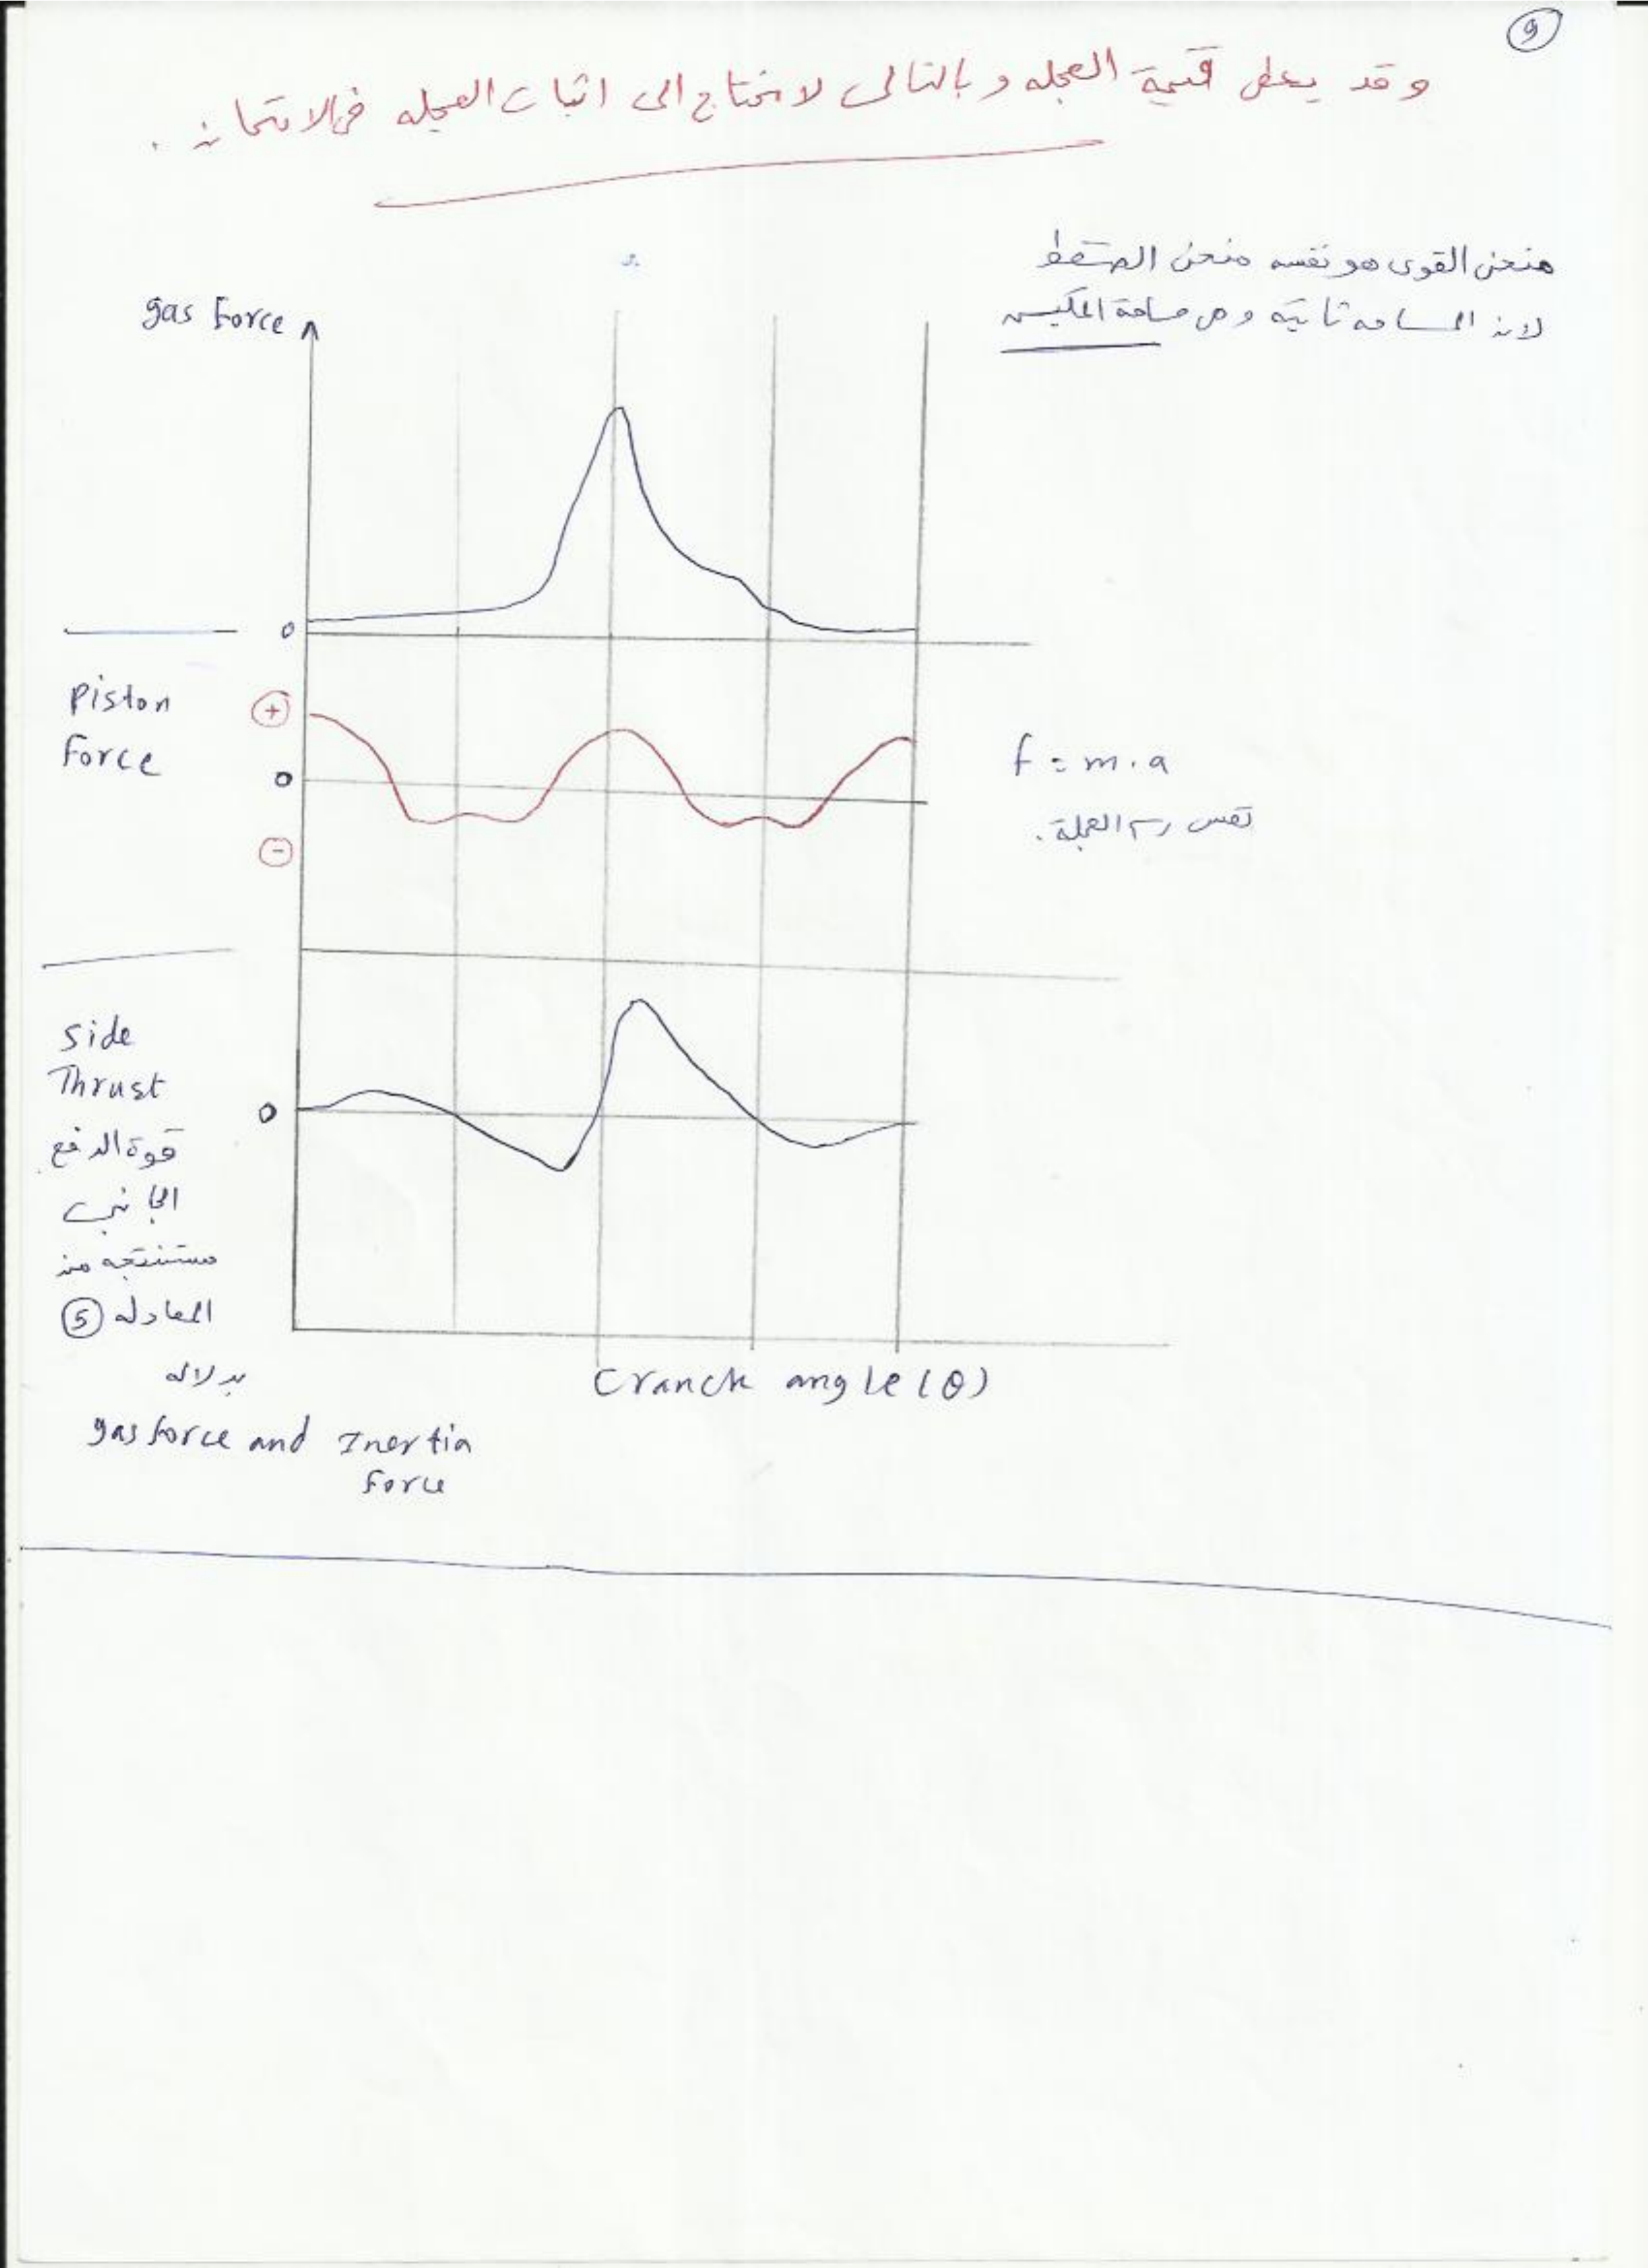 9
وقد يعطى قيمة العجله وبالتالى لا نحتاج الى اثبات العجله فى الامتحان .
منحنى القوى هو نفسه منحنى الضغط
لان المساحه ثابته وهى مساحة المكبس
gas Force
0
Piston
Force
+
0
-
f = m . a
نفس رسم العجلة .
Side
Thrust
0
قوة الدفع
الجانبى
مستنتجه من
المعادله 5
بدلاله
gas force and Inertia
Force
Cranck angle (θ)